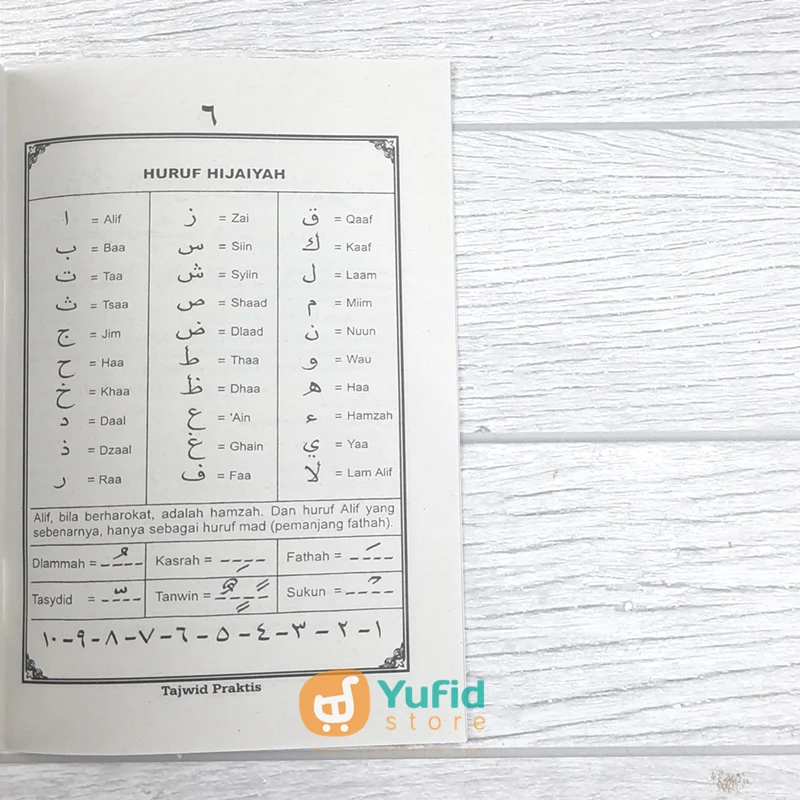 ٦
HURUF HIJAIYAH
ا = Alif
ب = Baa
ت = Taa
ث = Tsaa
ج = Jim
ح = Haa
خ = Khaa
د = Daal
ذ = Dzaal
ر = Raa
ز = Zai
س = Siin
ش = Syiin
ص = Shaad
ض = Dlaad
ط = Thaa
ظ = Dhaa
ع = 'Ain
غ = Ghain
ف = Faa
ق = Qaaf
ك = Kaaf
ل = Laam
م = Miim
ن = Nuun
و = Wau
ه = Haa
ء = Hamzah
ي = Yaa
لا = Lam Alif
Alif, bila berharokat, adalah hamzah. Dan huruf Alif yang
sebenarnya, hanya sebagai huruf mad (pemanjang fathah).
Dlammah = ــُـ Kasrah = ــِـ Fathah = ــَـ
Tasydid = ــّـ Tanwin = ــٌــًــٍـ Sukun = ــْـ
١ - ٢ - ٣ - ٤ - ٥ - ٦ - ٧ - ٨ - ٩ - ١٠
Tajwid Praktis
Yufid
store